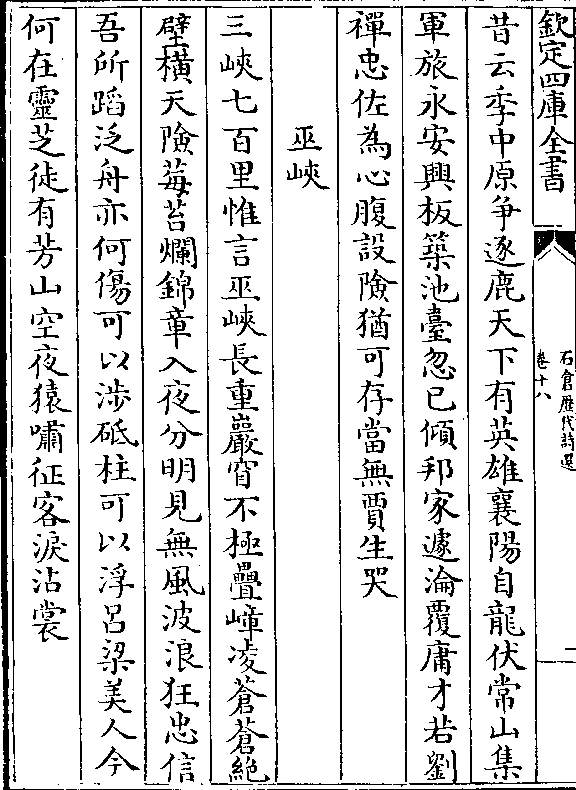 欽定四庫全書
石倉歷代詩選
卷十八
二
昔云季中原爭逐鹿天下有英雄襄陽自龍伏常山集
軍旅永安興板築池臺忽已傾邦家遽淪覆庸才若劉
禪忠佐為心腹設險猶可存當無賈生哭
巫峽
三峽七百里惟言巫峽長重巖窅不極疊嶂凌蒼蒼絶
壁橫天險莓苔爛錦章入夜分明見無風波浪狂忠信
吾所蹈泛舟亦何傷可以涉砥柱可以浮呂梁美人今
何在靈芝徒有芳山空夜猿嘯征客淚沾裳